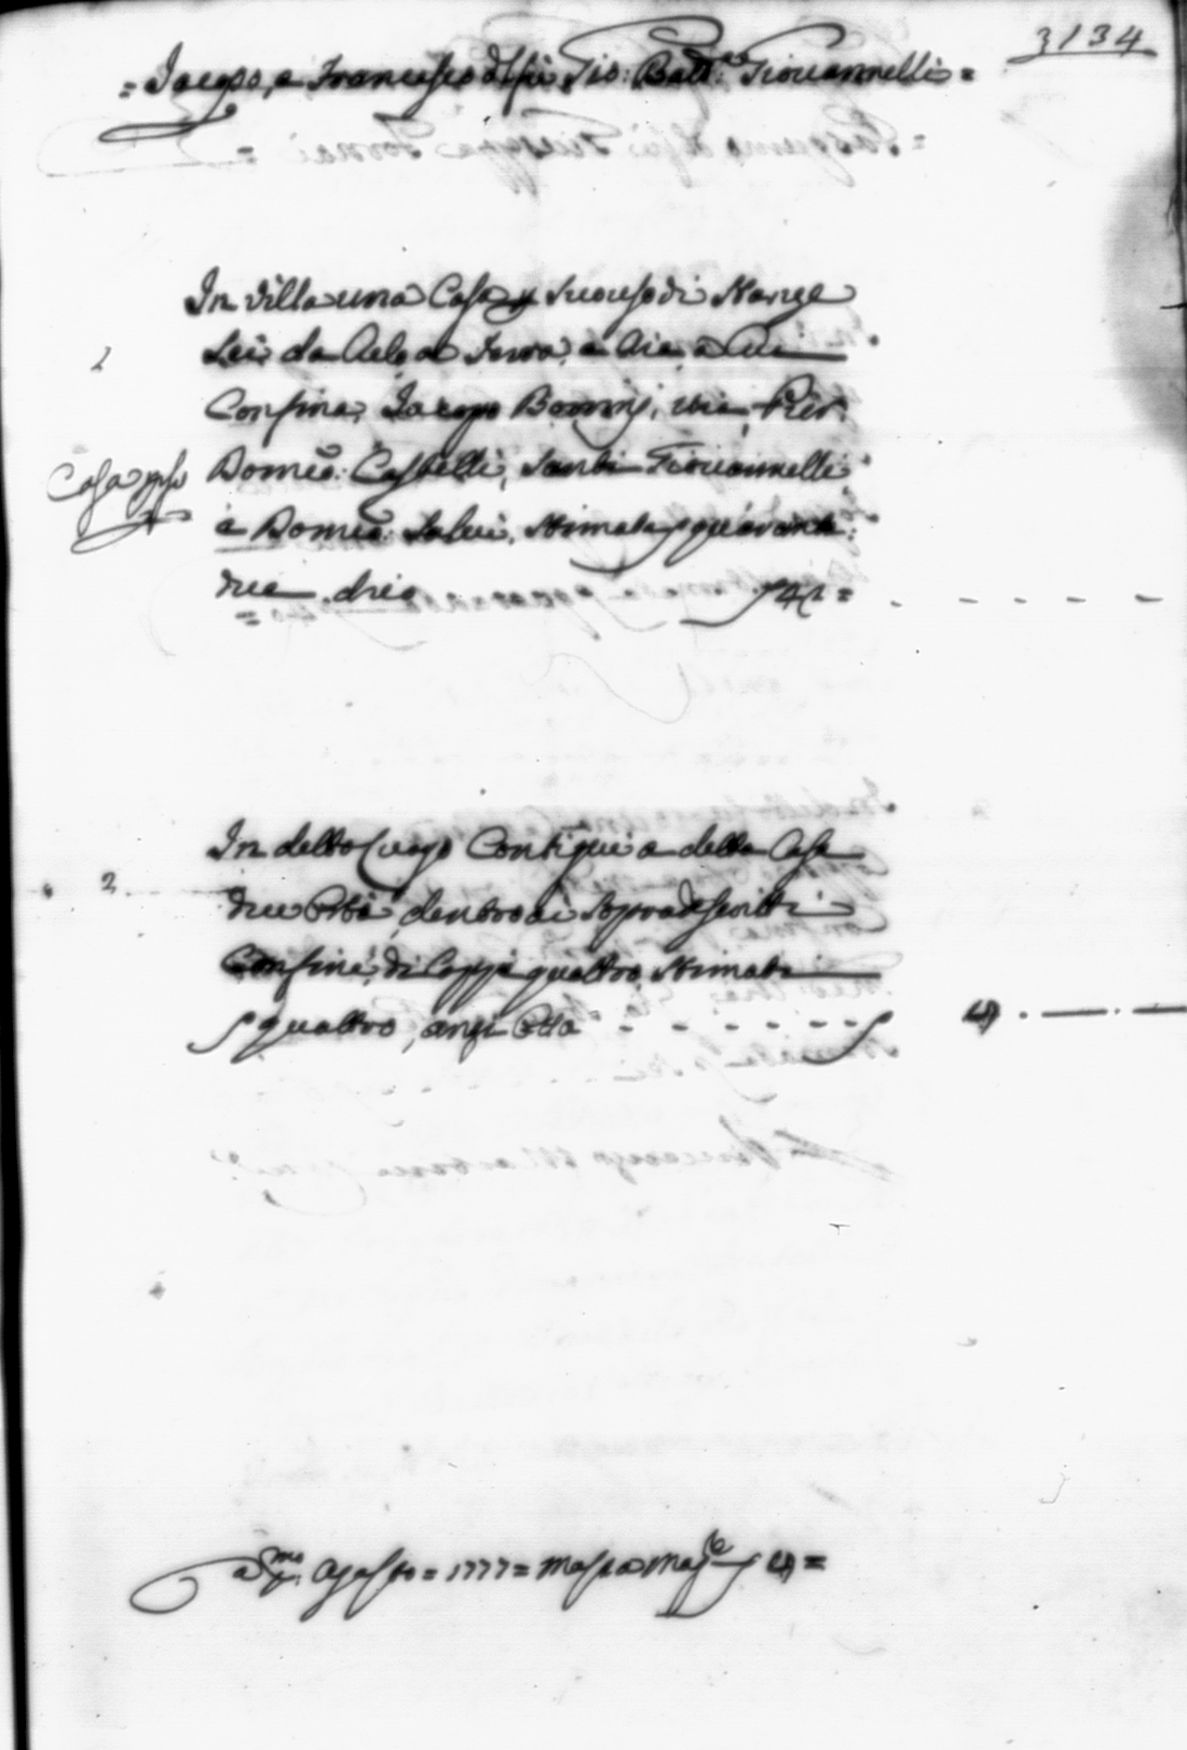 3134
= Jacopo, e Francesco del fù Gio: Batt.a Giovannelli =
In Villa una Casa p suo uso di Stanze
1 Sei da Cielo a Terra, e Aia, a cui
Confina, Jacopo Bonini, via, Pier
Casa p suo
Domco: Castelli, Santi Giovannelli
e Domco: Salvi, Stimata s quaranta
due dico s 42 = . - - - -
In detto Luogo Contiguo a detta Casa
2 due Orti, dentro ai Sopradescritti
Confini, di Coppi quattro, Stimati
s quattro, anzi Otto - - - - - - s 4 . — . —
a p.mo Agosto = 1777 = Massa Mag.re s 4 =